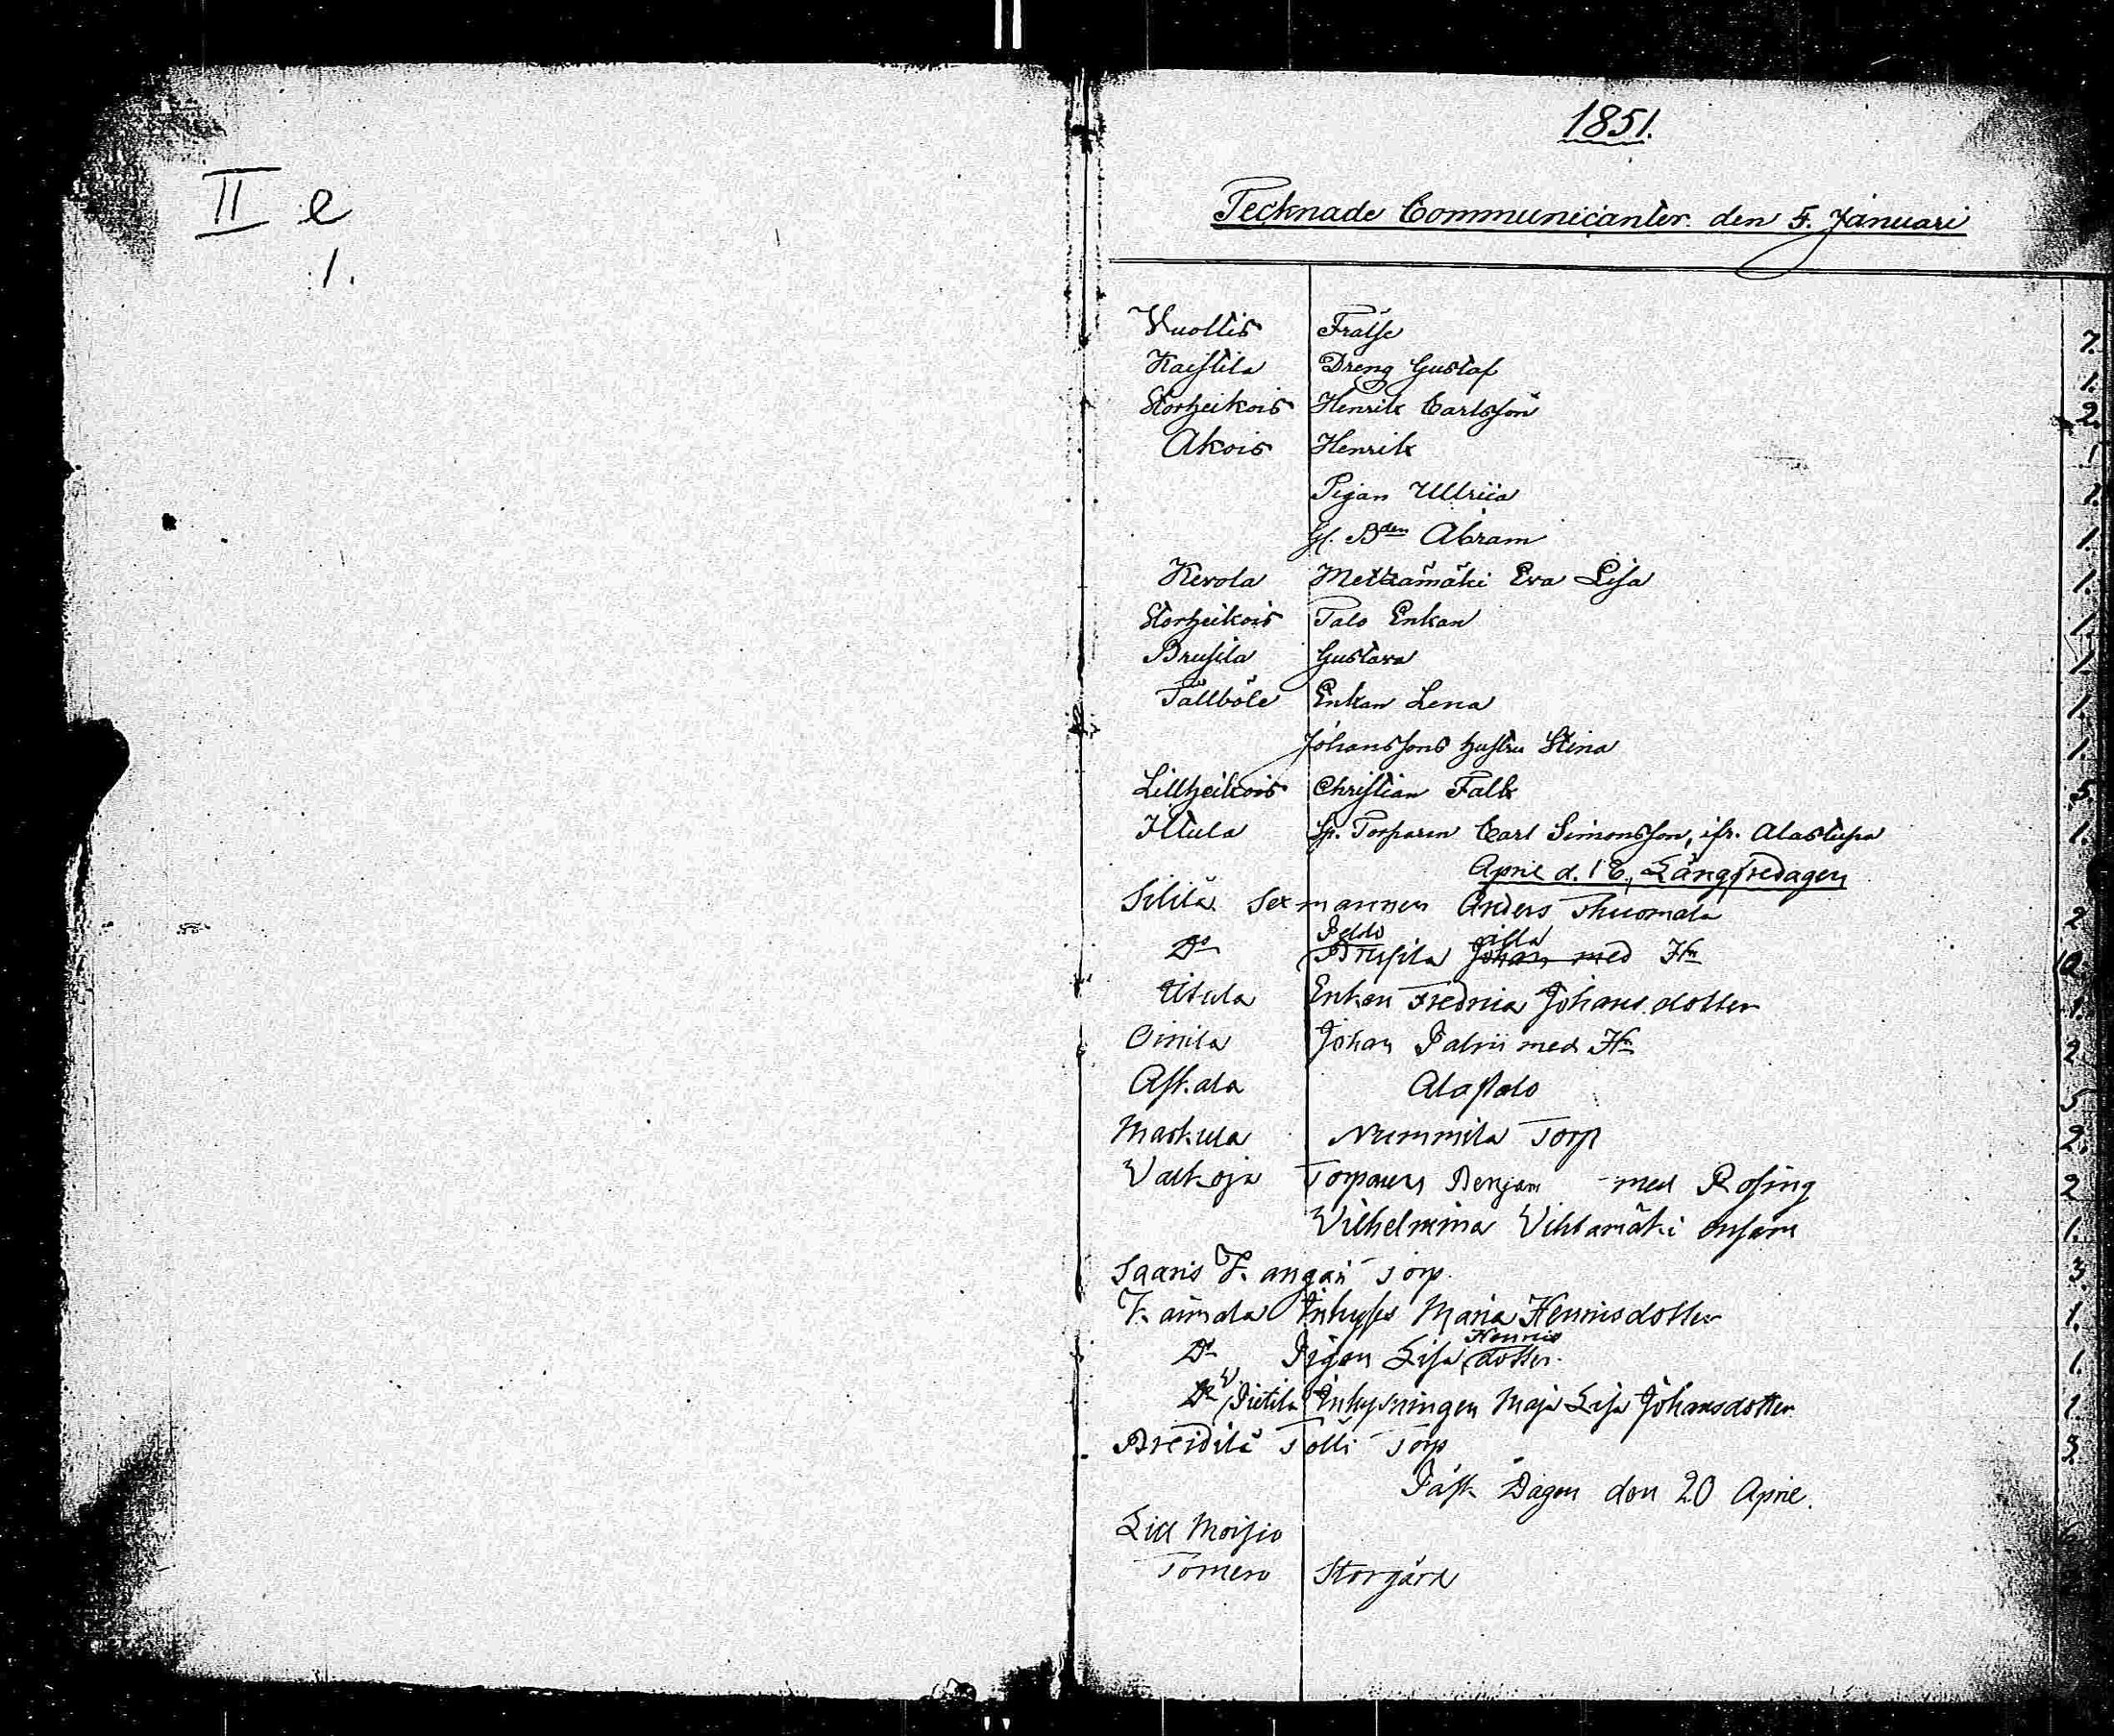 II e
1.
1851.
Tecknade Communicanter den 5. Januari
Vuoltis Frälse 7.
Kaistila Dreng Gustaf 1.
Storheikois Henrik Carlsson 2.
Akois Henrik 1
Pigan Ullrica 1.
Gl. Bden Abram 1.
Kerola Metzämäki Eva Lisa 1.
Storheikois Talo Enkan 1.
Brusila Gustava 1.
Tällböle Enkan Lena 1.
Johanssons hustru Stina 1.
Lillheikois Christian Falk 5.
Iltula Sp. Torparen Carl Simonsson, ifr. Alastupa 1.
April d. 18, Långfredagen
Sililä Sexmannen Anders Thuomala 2
Do Peldo Brusila Johan med Hu 10.
Iltula Enkan Fredrica Johansdotter 1.
Oinila Johan Palvii med Hu 2
Askala Alastalo 5
Markula Nummila Torp 2.
Valkoja Torparen Benjam med Rosing 2
Vilhelmina Vihtamäki ensam 1.
Saaris Kangari Torp. 3.
Kaunala Inhyses Maria Henricsdotter 1.
Do Pigan Lisa Henrics dotter. 1.
Do Pietilä Inhysningen Maja Lisa Johansdotter 1
Breidilä Tolli Torp 3.
Påsk Dagen den 20 April.
Lill Moisio 6
Tomero Storgård